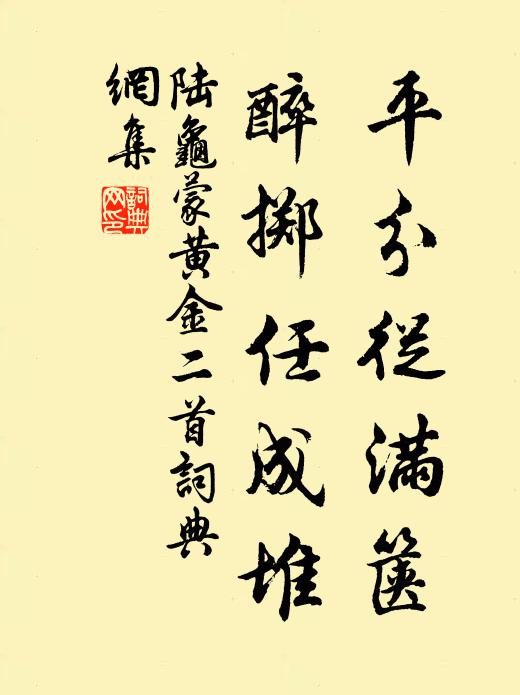 平分從滿篋
醉擲任成堆
陸龜蒙黃金二首詞典
網集
詞典網印